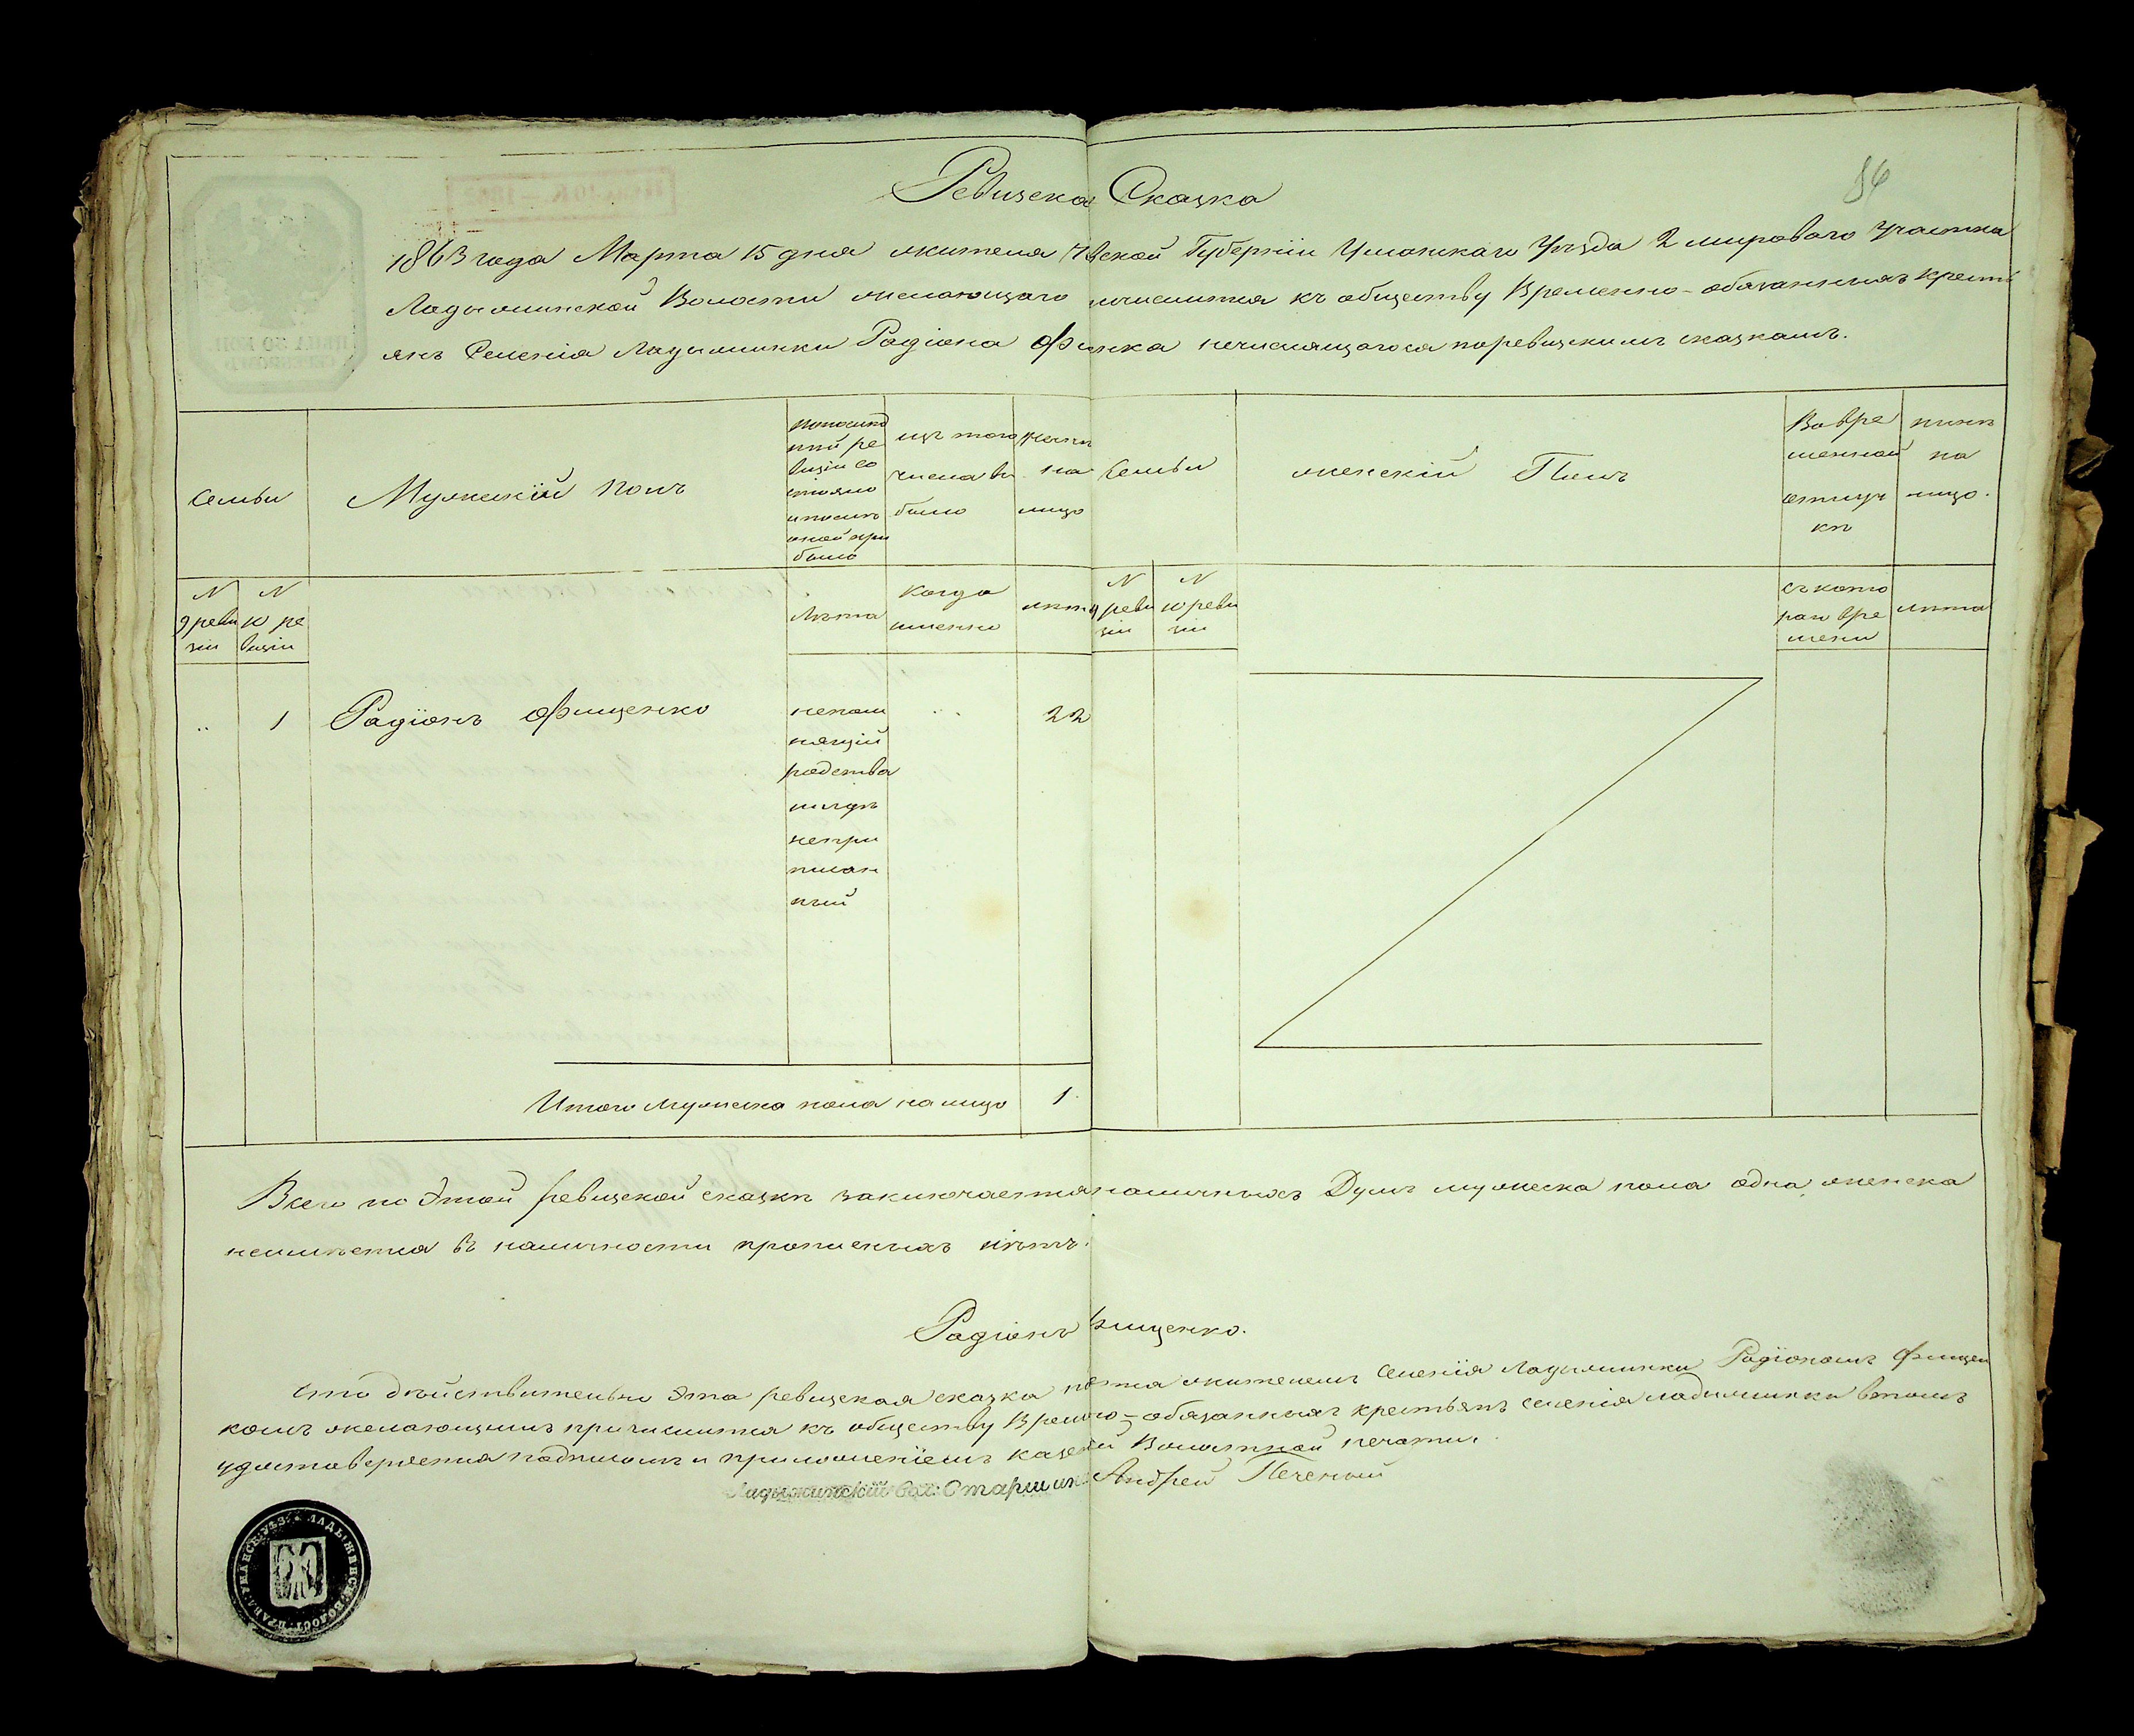 86
Ревизска Сказка
1863 года Марта 15 дня жителя К³вской Губернiи Уманскаго Уѣзда 2 мироваго участка
Ладыжинской Волости желающаго причислится къ обществу Временно-обязанныхъ кресть
янъ Селенiя Ладыжинки Радiона Фищенка нечислящагося поревизкимъ сказкамъ.
Семьи
Мужескiй полъ
попослѣд
ней ре
визiи со
стояло
ипослѣ
оной при
было
изъ того
числа вы
было
нынѣ
на
лицо
Семьи
женскiй Полъ
Во вре
менной
отлуч
кѣ
нынѣ
на
лицо.
N
9 реви
зiи
N
10 ре
визiи
Лѣта
когда
именно
лѣта
N
9 реви
зiи
N
10 реви
зiи
съ кото
раго вре
мени
лѣта
..
1
Радiонъ Фищенко
непом
нящiй
родства
нигдѣ
непри
писан
ный
..
22
Итого Мужеска пола на лицо 1
Всего по Этой ревизской сказкѣ заключается наличныхъ Душъ мужеска пола одна, женска
неимѣется въ наличности прописныхъ нѣтъ.
Радiонъ Фищенко.
Что дѣйствительно Эта ревизская сказка жителемъ Селенiя Ладыжинки Радiономъ Фищен
комъ желающимъ причислится къ обществу Времено-обязанныхъ крестьянъ селенiя ладыжинки втомъ
удостоверяется подписомъ и приложенiемъ казеной Волостной печати.
Ладыжинскiй Вол: Старшина Андрей Печеный
ЛАДЫЖИНСК: ВОЛОСТ: ПРАВЛ: УМАНСК: УѢЗ: